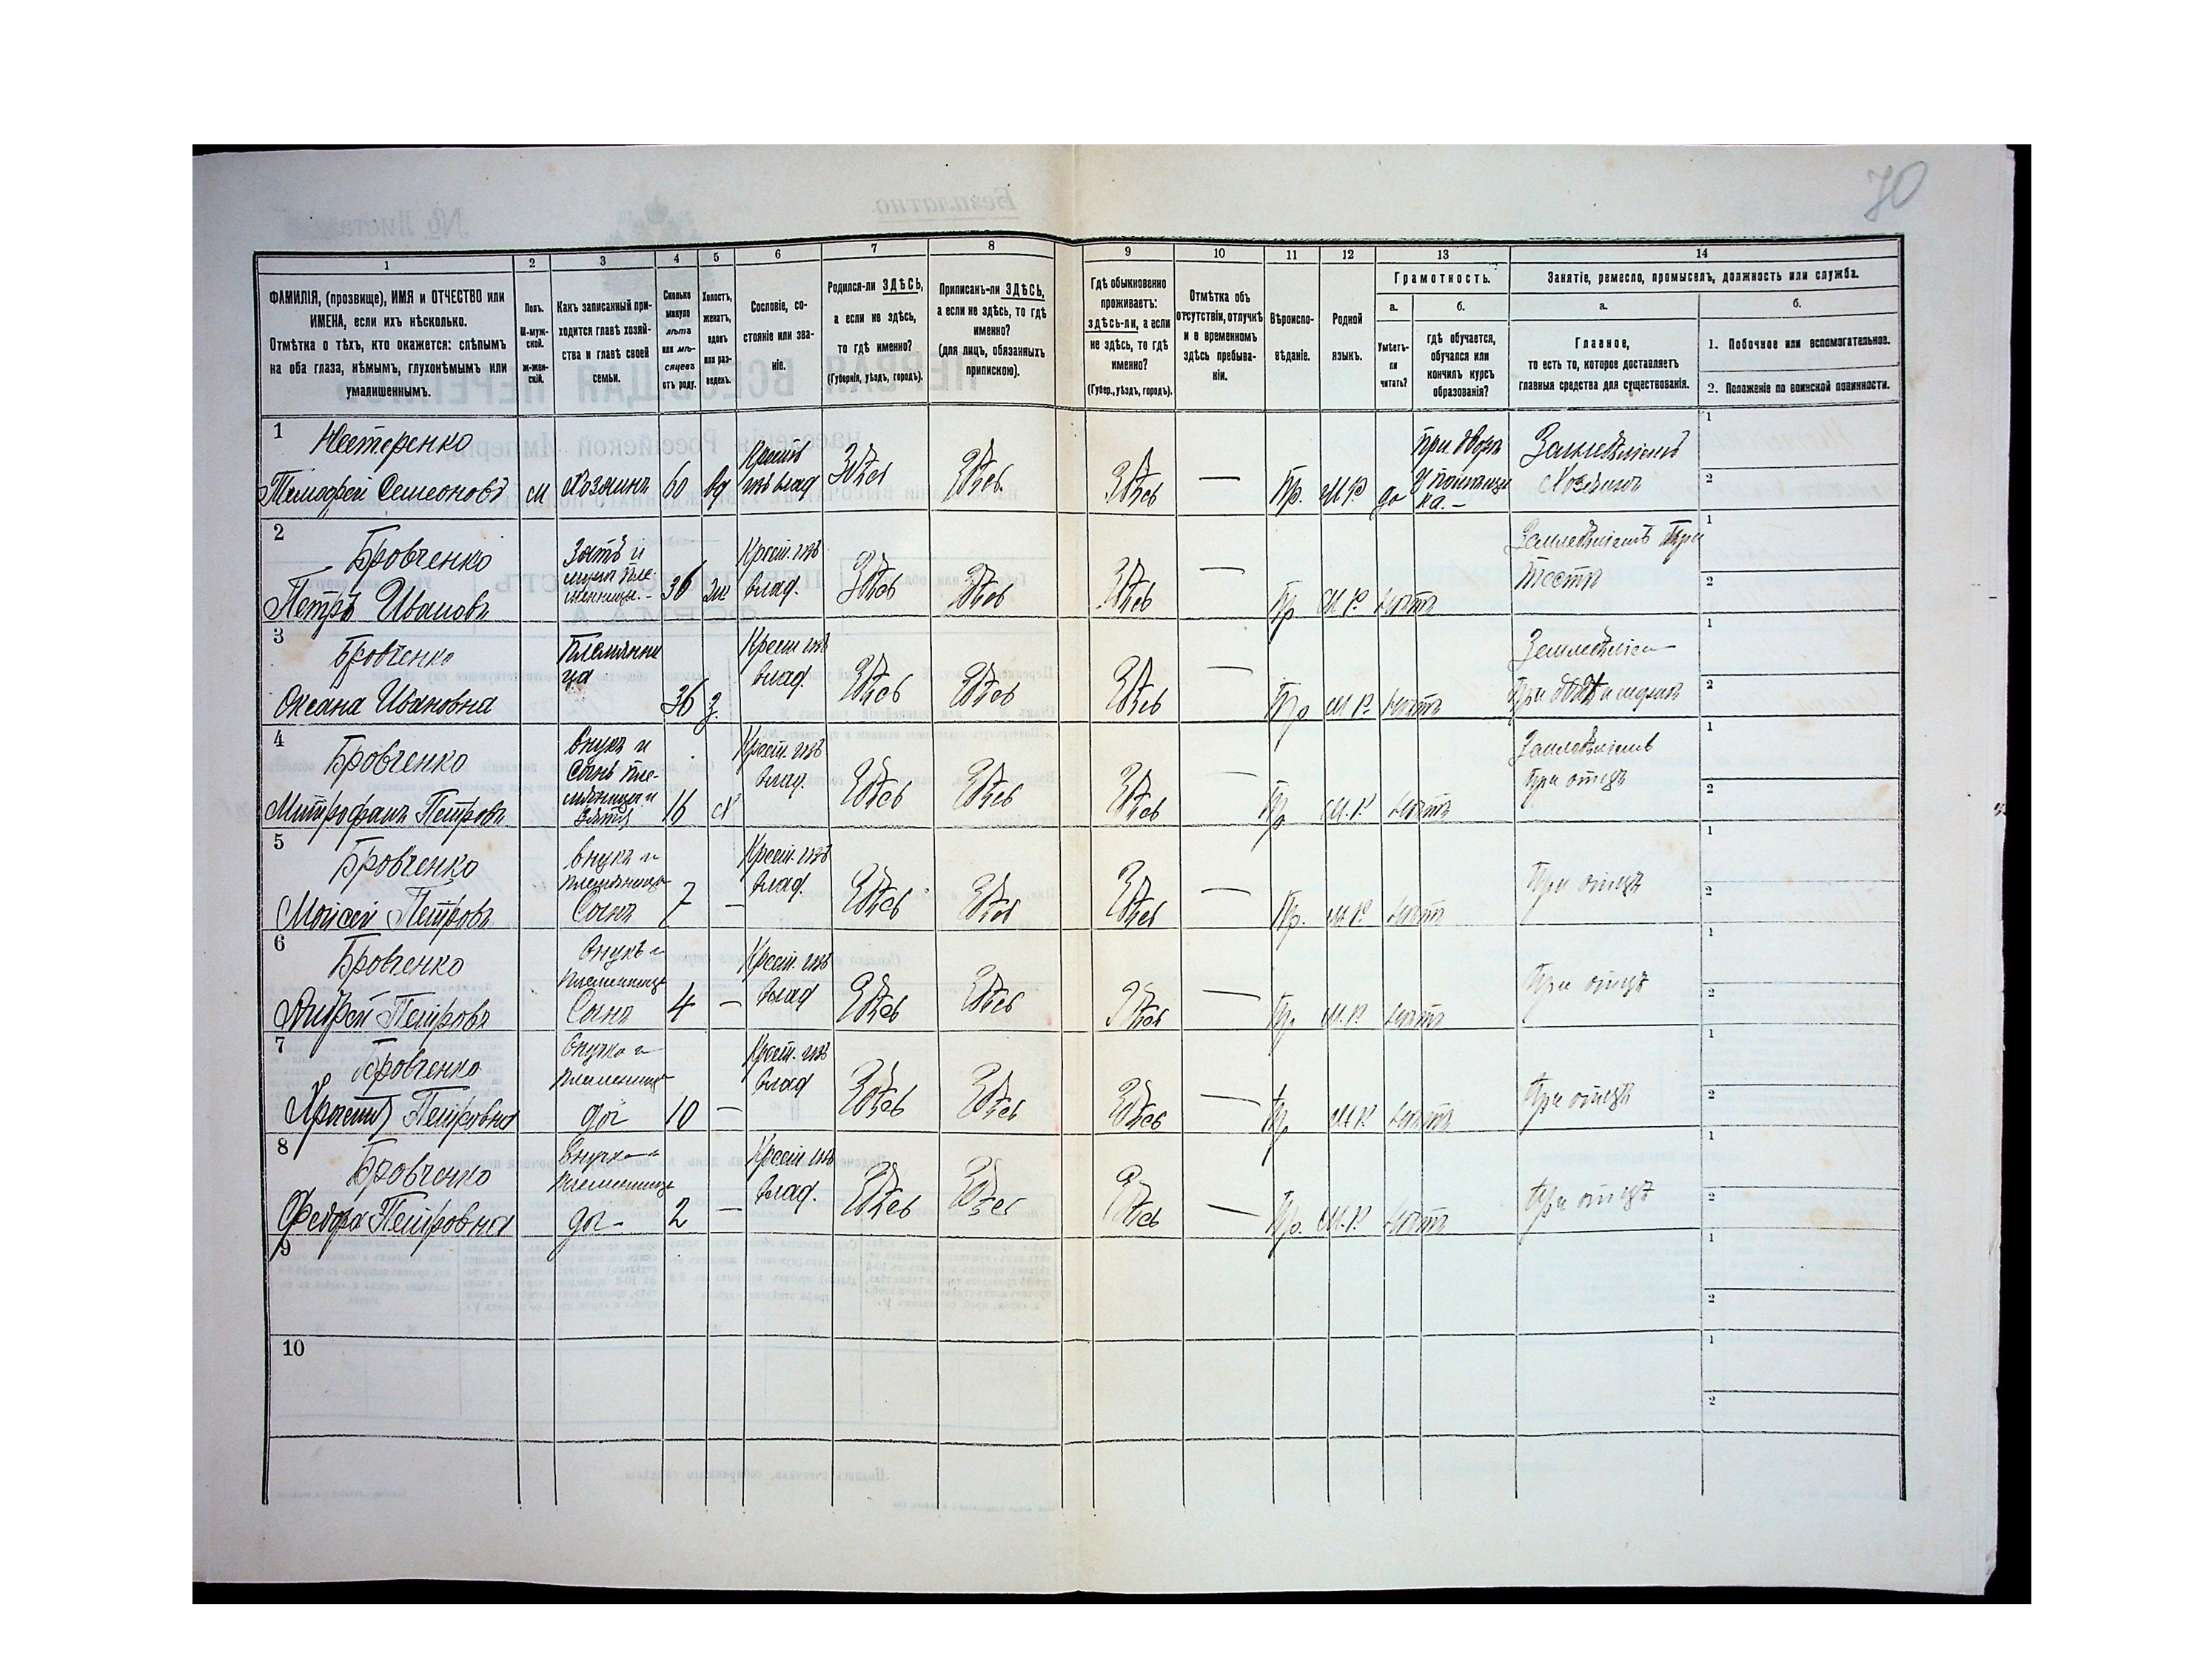 70
1
2
3
4
5
6
7
8
9
10
11
12
13
14
ФАМИЛІЯ, (прозвище), ИМЯ и ОТЧЕСТВО или
ИМЕНА, если ихъ нѣсколько.
Отмѣтка о тѣхъ, кто окажется: слѣпымъ
на оба глаза, нѣмымъ, глухонѣмымъ или
умалишеннымъ.
Полъ.
М-муж-
ской.
ж-жен-
скій.
Какъ записанный при-
ходится главѣ хозяй-
ства и главѣ своей
семьи.
Сколько
минуло
лѣтъ
или мѣ-
сяцевъ
отъ роду.
Холостъ,
женатъ,
вдовъ
или раз-
веденъ.
Сословіе, со-
стояніе или зва-
ніе.
Родился-ли ЗДѢСЬ,
а если не здѣсь,
то гдѣ именно?
(Губернія, уѣздъ, городъ).
Приписанъ-ли ЗДѢСЬ,
а если не здѣсь, то гдѣ
именно?
(для лицъ, обязанныхъ
припискою).
Гдѣ обыкновенно
проживаетъ:
здѣсь-ли, а если
не здѣсь, то гдѣ
именно?
(Губер., уѣздъ, городъ).
Отмѣтка объ
отсутствіи, отлучкѣ
и о временномъ
здѣсь пребыва-
ніи.
Вѣроиспо-
вѣданіе.
Родной
языкъ.
Грамотность.
а.
Умѣетъ-
ли
читать?
б.
гдѣ обучается,
обучался или
кончилъ курсъ
образованія?
Занятіе, ремесло, промыселъ, должность или служба.
а.
Главное,
то есть то, которое доставляетъ
главныя средства для существованія.
б.
1. Побочное или вспомогательное.
2. Положеніе по воинской повинности.
1 Нестеренко
Тимофей Семеоновъ м Хозяинъ 60 вд Крест. изъ влад Здѣсь Здѣсь Здѣсь — Пр. М.Р. да при дворѣ у помѣщика.- Земледѣліемъ Хозяинъ
1
2
2 Бровченко
Петръ Ивановъ Зять и мужъ племянницы.- 36 жн Крест. изъ влад. Здѣсь Здѣсь Здѣсь — Пр М.Р. нѣтъ Земледѣліемъ При тестѣ
1
2
3 Бровченко
Оксана Ивановна Племянница 36 з. Крест изъ влад. Здѣсь Здѣсь Здѣсь — Пр М.Р. нѣтъ
1
2
4 Бровченко
Митрофанъ Петровъ Внукъ и Сынъ племяницы и зятя 16 х Крест. изъ влад. Здѣсь Здѣсь Здѣсь — Пр М.Р. нѣтъ Земледѣліемъ при отцѣ
1
2
5 Бровченко
Мойсей Петровъ внукъ и племяницы Сынъ 7 — Крест. изъ влад. Здѣсь Здѣсь Здѣсь — Пр. М.Р. нѣтъ При отцѣ
1
2
6 Бровченко
Андрей Петровъ Внукъ и племяницы Сынъ 4 — Крест. изъ влад Здѣсь Здѣсь Здѣсь — Пр М.Р. нѣтъ При отцѣ
1
2
7 Бровченко
Петровна Внучка и племяницы доч 10 — Крест. изъ влад Здѣсь Здѣсь Здѣсь — Пр М.Р. нѣтъ При отцѣ
1
2
8 Бровченко
Федора Петровна Внучка и племяницы доч 2 — Крест изъ влад. Здѣсь Здѣсь Здѣсь — Пр. М.Р. нѣтъ При отцѣ
1
2
9
1
2
10
1
2